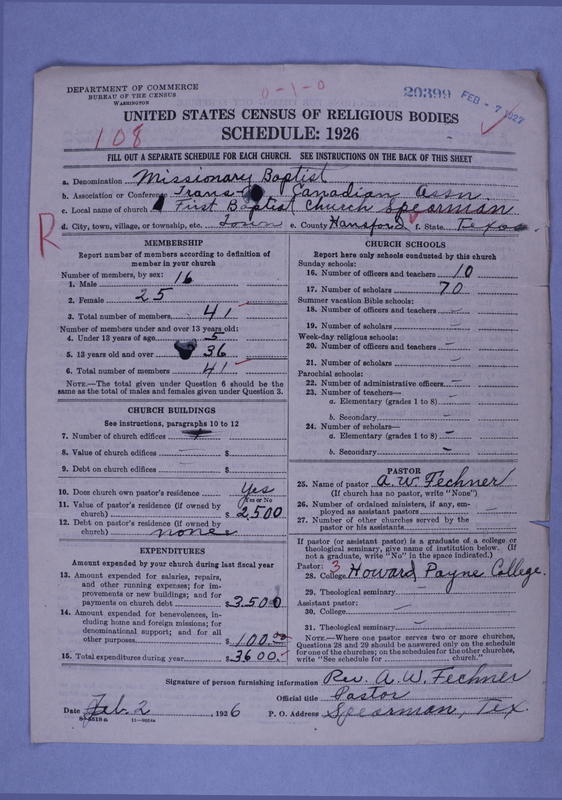 DEPARTMENT OF COMMERCE
BUREAU OF THE CENSUS
WASHINGTON
0-1-0
20399 FEB - 7 1927
108
UNITED STATES CENSUS OF RELIGIOUS BODIES
SCHEDULE: 1926
FILL OUT A SEPARATE SCHEDULE FOR EACH CHURCH. SEE INSTRUCTIONS ON THE BACK OF THIS SHEET
a. Denomination Missionary Baptist
b. Association or Conference Trans- Canadian Assn.
c. Local name of church First Baptist Church Spearman
d. City, town, village, or township, etc. Town e. County Hansford f. State Texas
R
MEMBERSHIP
Report number of members according to definition of
member in your church
Number of members, by sex:
1. Male 16
2. Female 25
3. Total number of members 41
Number of members under and over 13 years old:
4. Under 13 years of age 5
5. 13 years old and over 36
6. Total number of members 41
NOTE.—The total given under Question 6 should be the
same as the total of males and females given under Question 3.
CHURCH BUILDINGS
See instructions, paragraphs 10 to 12
7. Number of church edifices
8. Value of church edifices — $
9. Debt on church edifices — $
10. Does church own pastor's residence Yes
Yes or No
11. Value of pastor's residence (if owned by
church) $ 2,500
12. Debt on pastor's residence (if owned by
church) none
EXPENDITURES
Amount expended by your church during last fiscal year
13. Amount expended for salaries, repairs,
and other running expenses; for im-
provements or new buildings; and for
payments on church debt $ 3500
14. Amount expended for benevolences, in-
cluding home and foreign missions; for
denominational support; and for all
other purposes $ 100.00
15. Total expenditures during year $ 3600.
CHURCH SCHOOLS
Report here only schools conducted by this church
Sunday schools:
16. Number of officers and teachers 10
17. Number of scholars 70
Summer vacation Bible schools:
18. Number of officers and teachers —
19. Number of scholars —
Week-day religious schools:
20. Number of officers and teachers —
21. Number of scholars —
Parochial schools:
22. Number of administrative officers —
23. Number of teachers—
a. Elementary (grades 1 to 8) —
b. Secondary —
24. Number of scholars—
a. Elementary (grades 1 to 8) —
b. Secondary —
PASTOR
25. Name of pastor A. W. Fechner
(If church has no pastor, write "None")
26. Number of ordained ministers, if any, em-
ployed as assistant pastors —
27. Number of other churches served by the
pastor or his assistants
If pastor (or assistant pastor) is a graduate of a college or
theological seminary, give name of institution below. (If
not a graduate, write "No" in the space indicated.)
Pastor: 3
28. College Howard Payne College.
29. Theological seminary —
Assistant pastor:
30. College —
31. Theological seminary —
NOTE.—Where one pastor serves two or more churches,
Questions 28 and 29 should be answered only on the schedule
for one of the churches; on the schedules for the other churches,
write "See schedule for church."
Signature of person furnishing information Rev. A. W. Fechner
Official title Pastor
Date Feb. 2, 1926 P. O. Address Spearman, Tex.